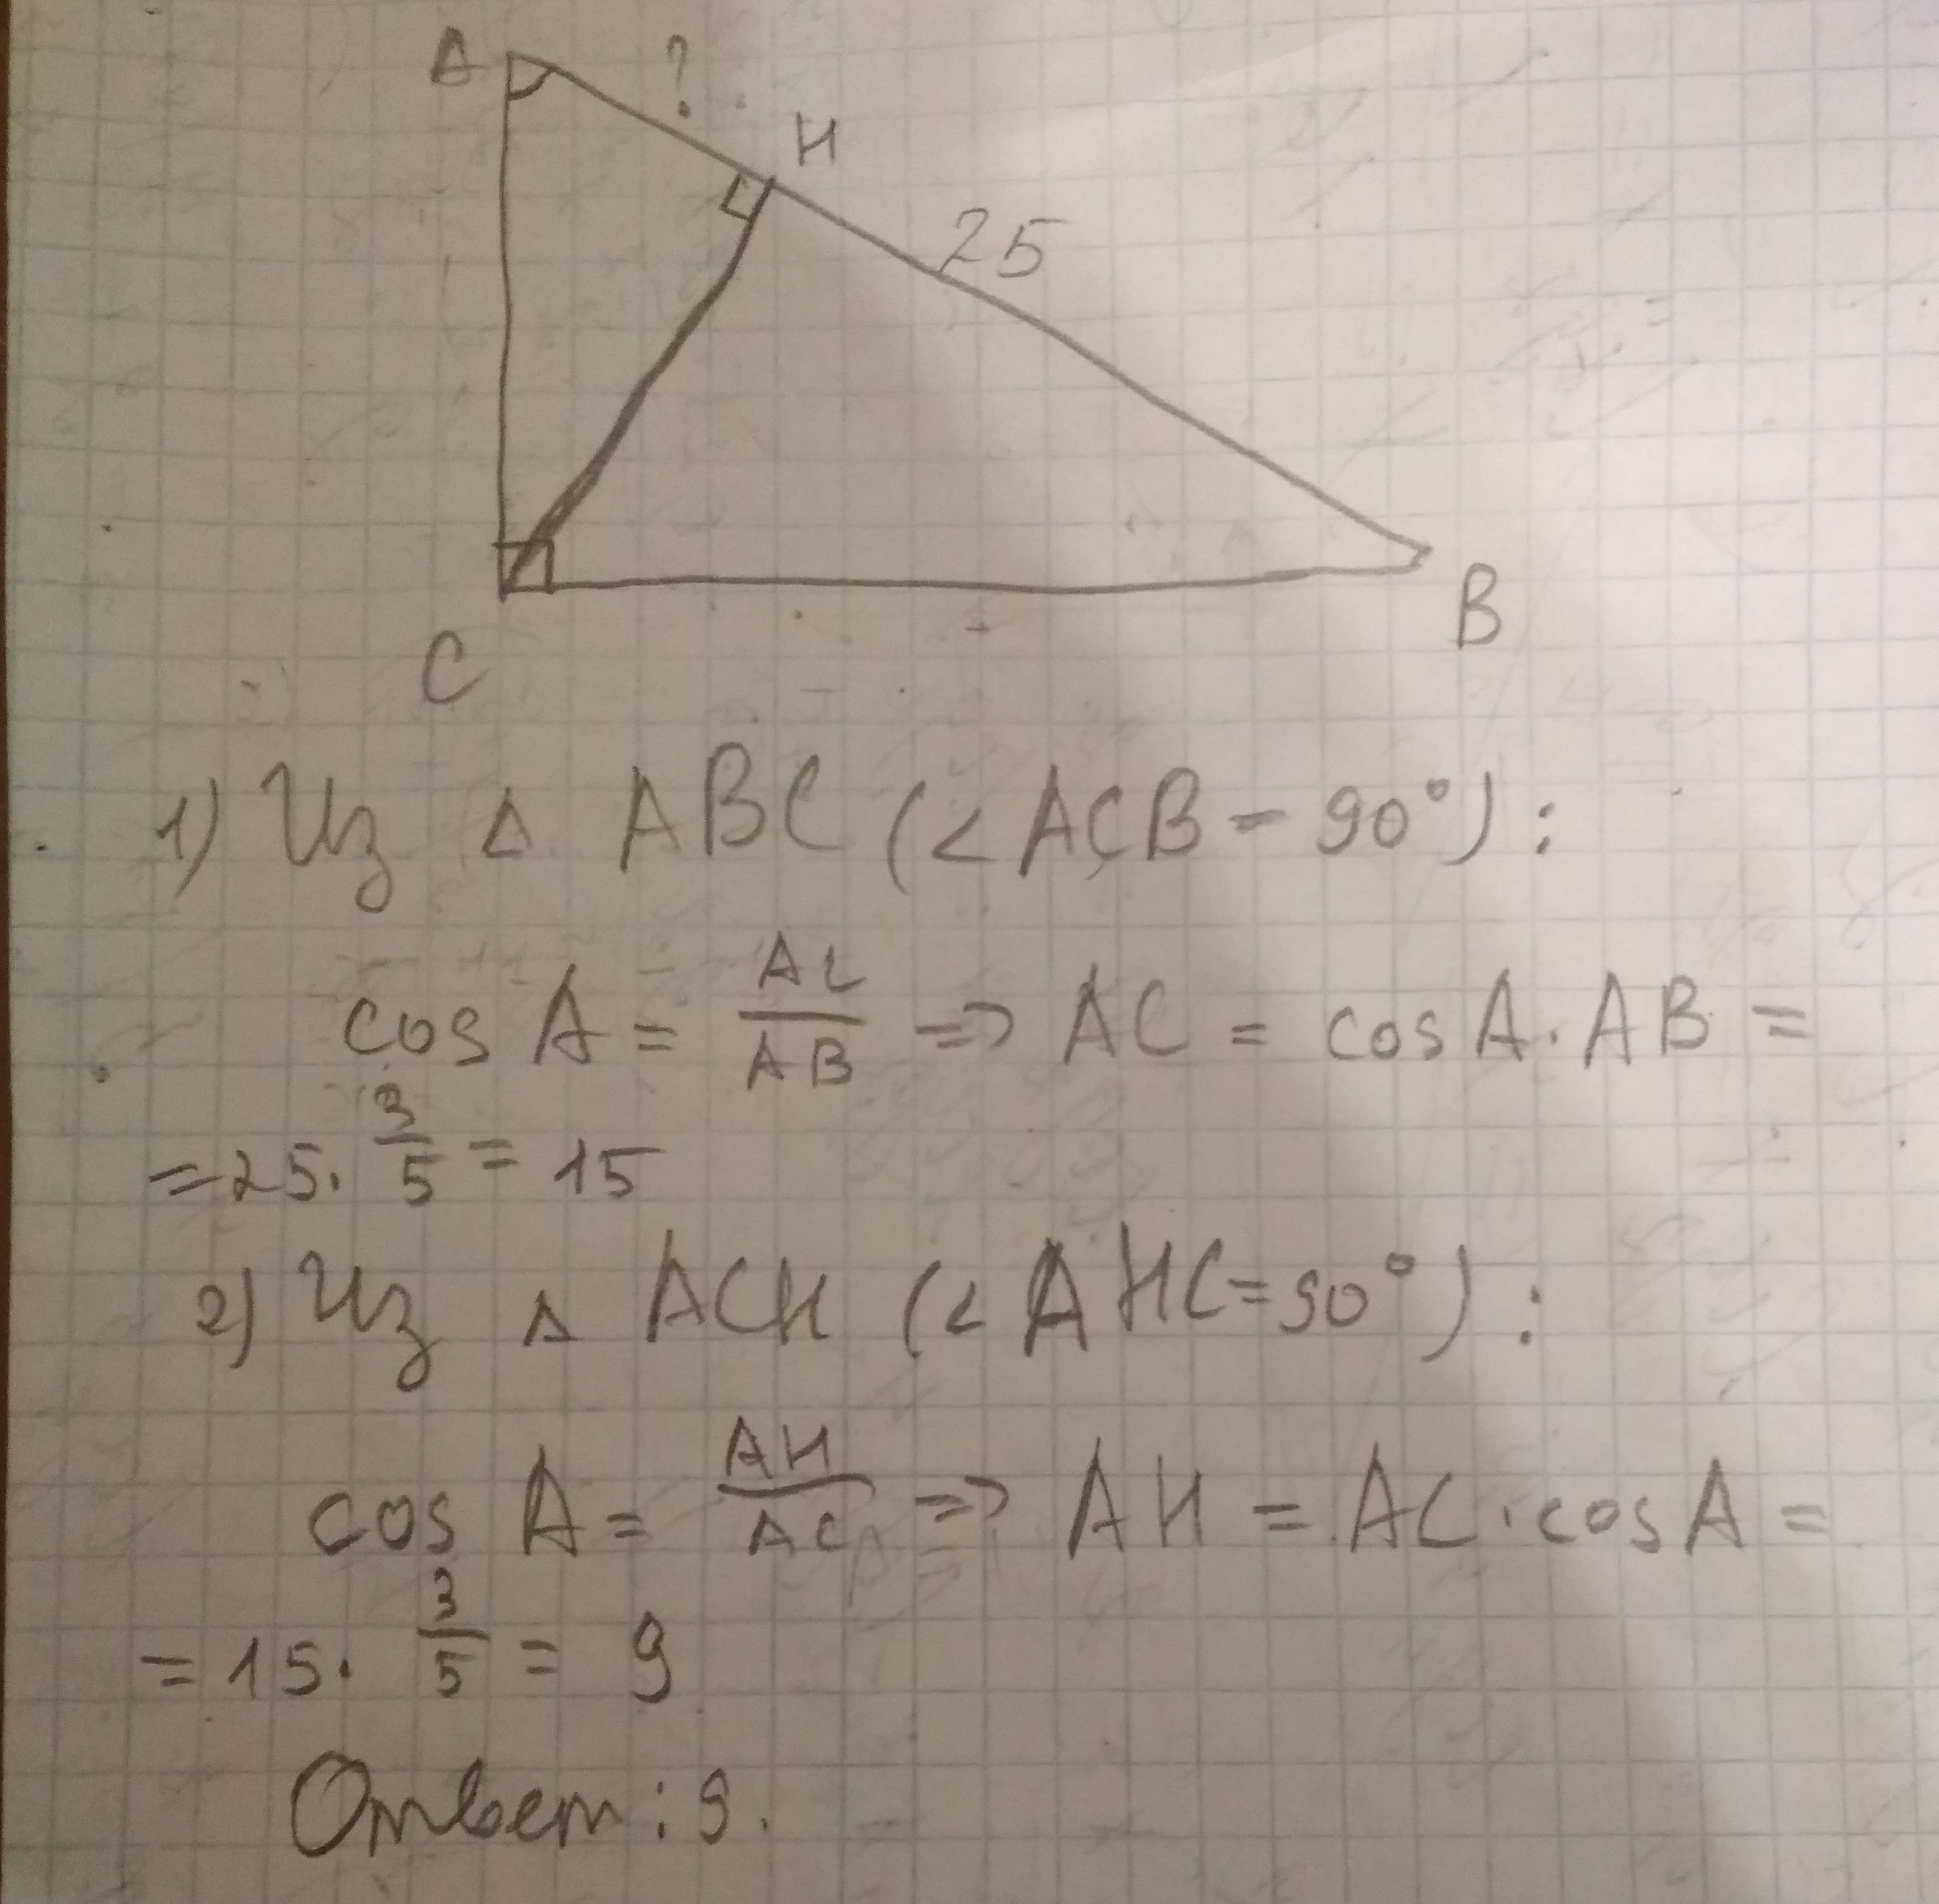 A ? H
25
C B
1) Из Δ ABC (∠ACB - 90°):
cos A = AC/AB => AC = cos A · AB =
= 25 · 3/5 = 15
2) Из Δ ACH (∠AHC = 90°):
cos A = AH/AC => AH = AC · cos A =
= 15 · 3/5 = 9
Ответ: 9.